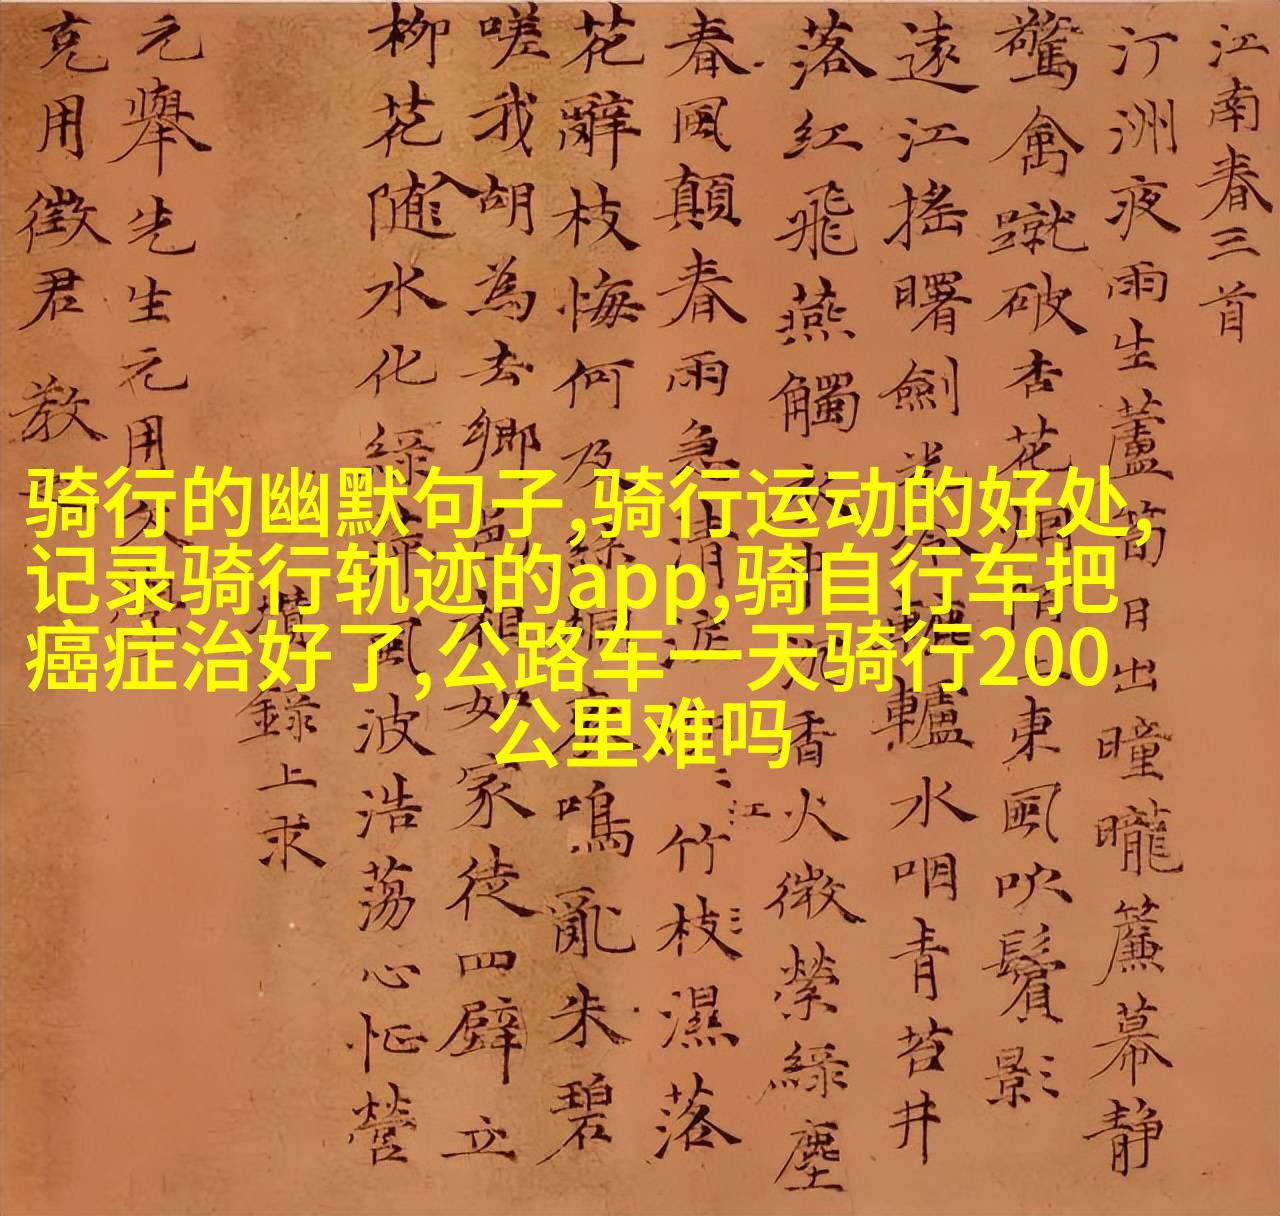 骑行的幽默句子,骑行运动的好处,
记录骑行轨迹的app,骑自行车把
癌症治好了,公路车一天骑行200
公里难吗
江南春三首
汀洲夜雨生蘆笋日出曈曨簾幕静
驚禽蹴破杏花烟陌上東風吹鬢影
遠江摇曙劍光寒轆轤水咽青苔井
落红飛燕觸衣巾沉香火微縈緑塵
春風顛春雨急清江竹枝濕落
花辭枝悔何及絲桐哀鳴亂朱碧
嗟我胡為去鄉邑相如家徒四壁立
柳花入随水化緑萍風波浩蕩心忙營
錄上求
元舉先生元用文
克用徵君 教